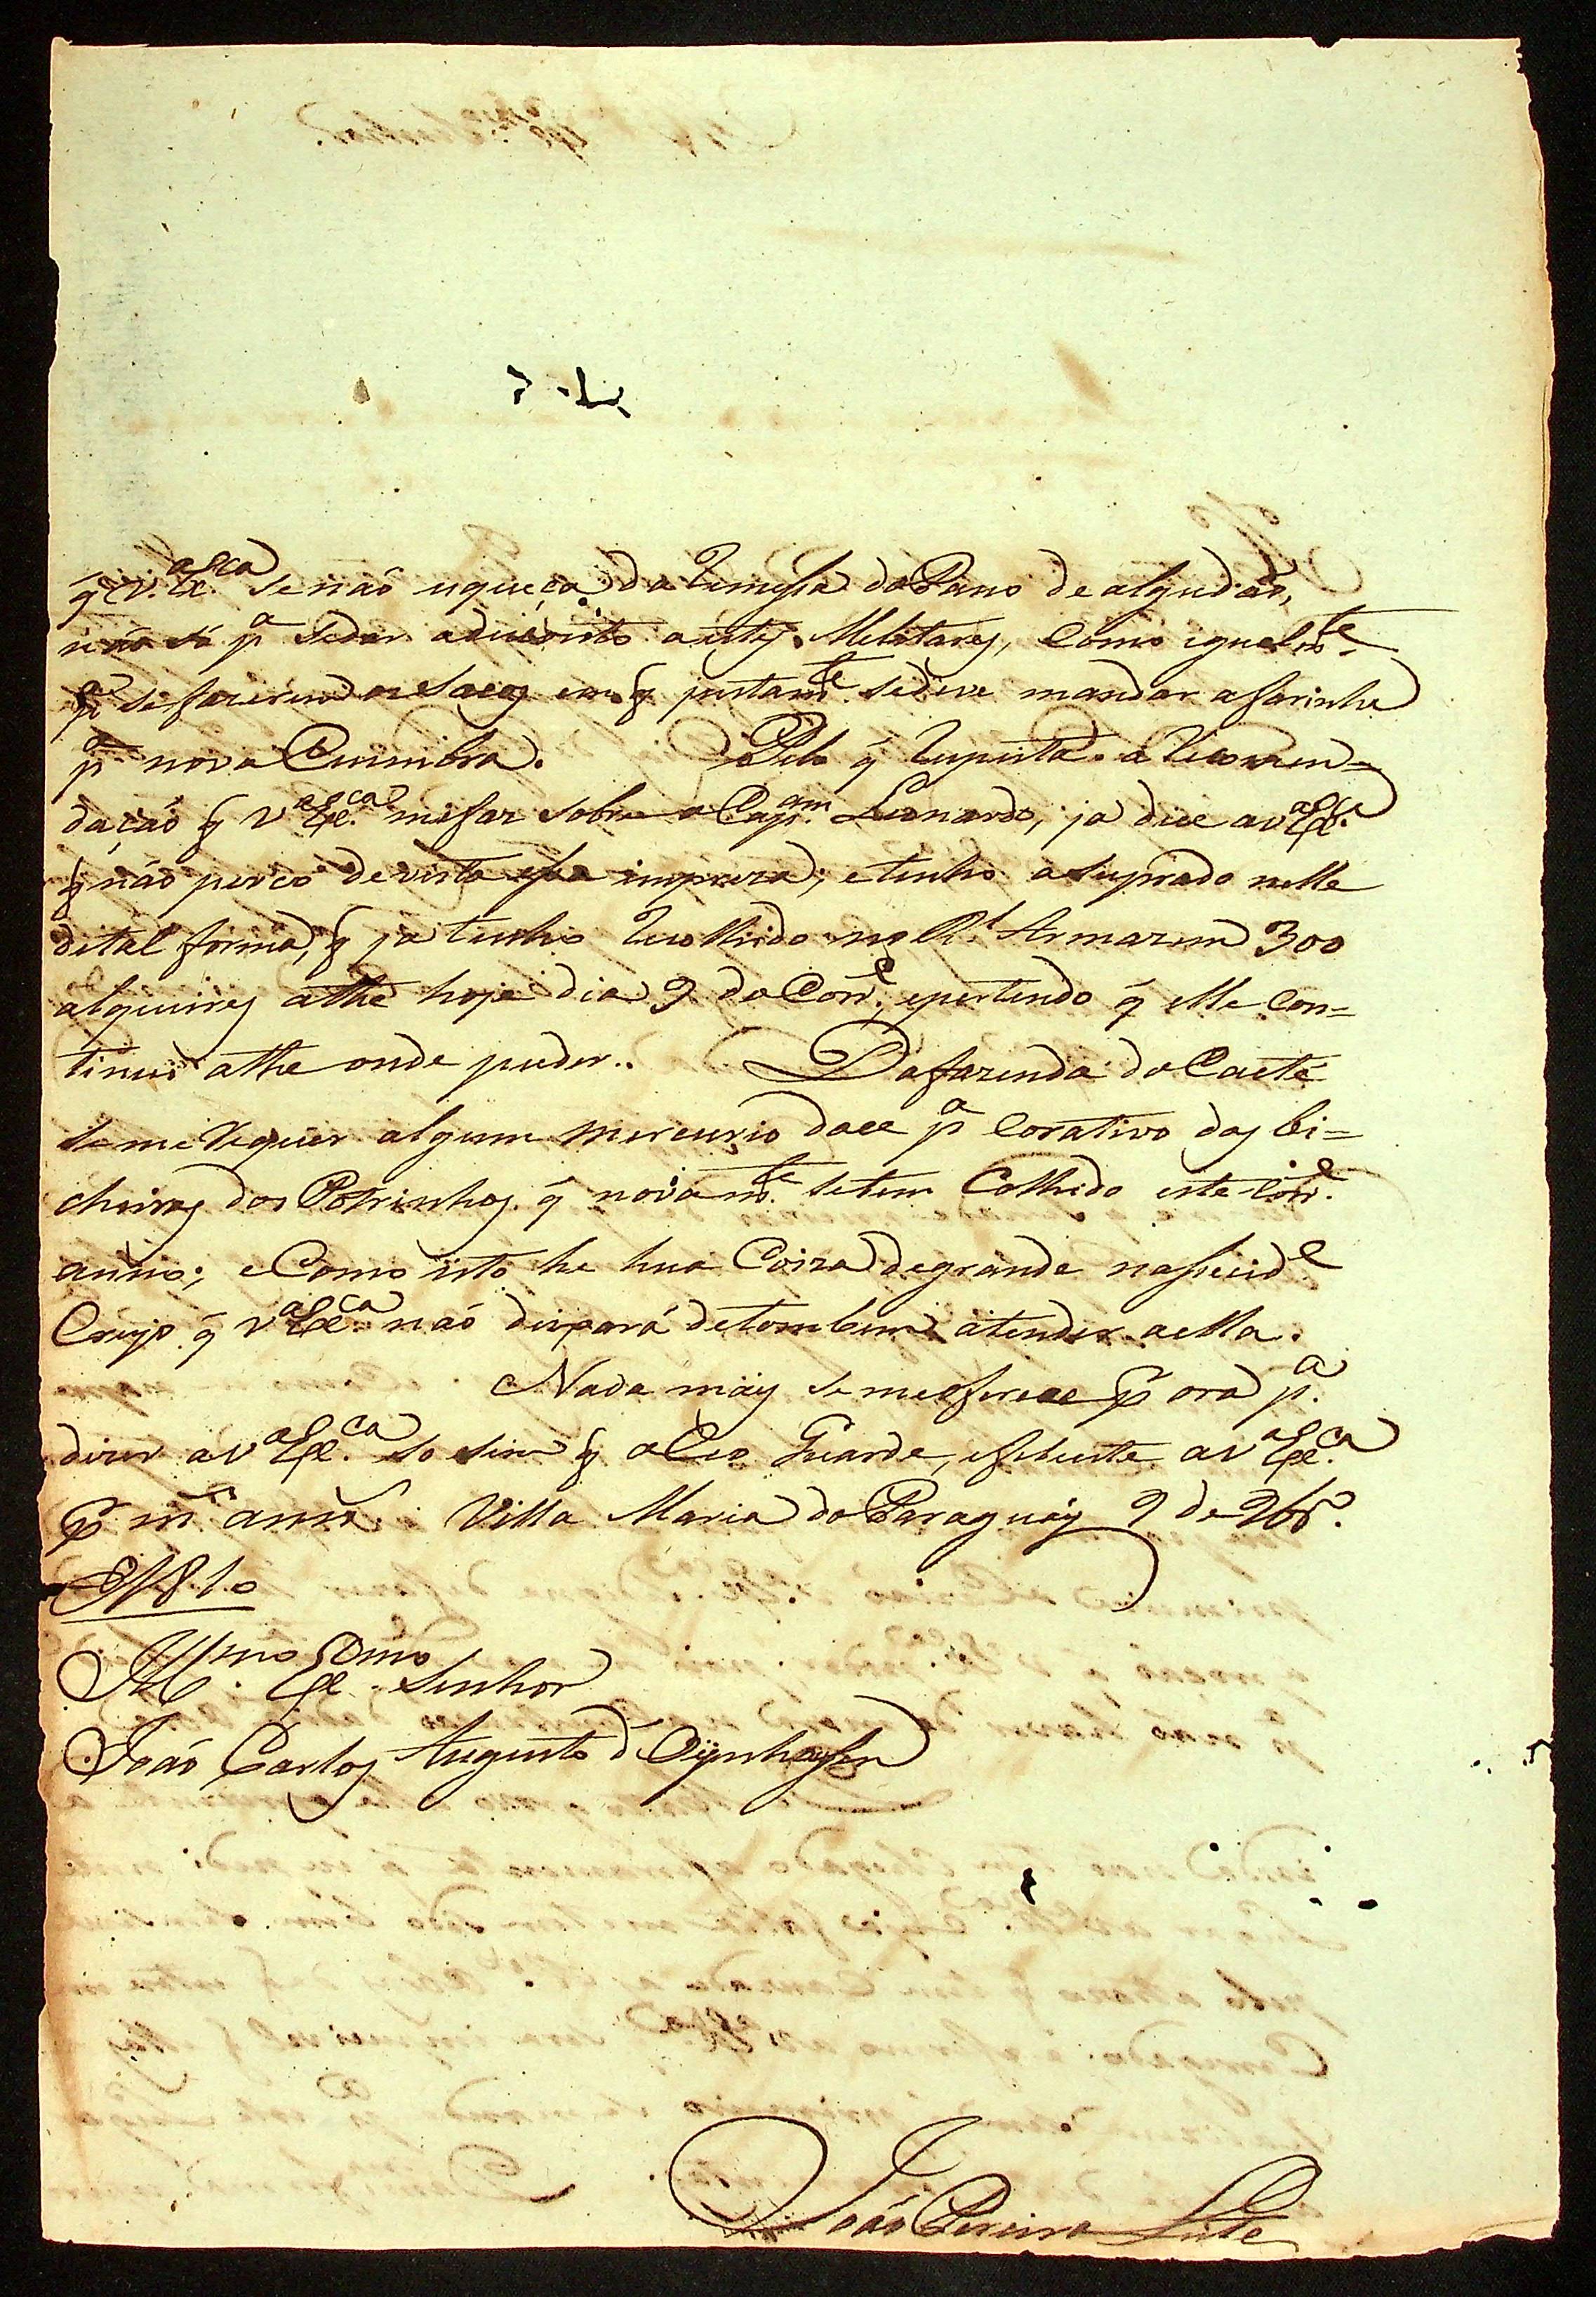 q̃ V.ª Ex.ca se naõ esqueça da remessa do Pano de algudaõ,
naõ só p.ª se dar adeconto a estes Melitares, como igualm.te
p.ª se fazerem os Sacos em q̃ justam.te se deve mandar a farinha
p.ª nova Cuimbra. Pelo q̃ respeita a recomen=
daçaõ q̃ V.ª Ex.ca me faz sobre o Cap.am Leonardo, ja dice a V.ª Ex.ca
q̃ naõ perco de vista essa impreza; e tenho asuprado nelle
de tal forma, q̃ ja tenho recolhido no R.l Armazem 300
alqueires athe hoje dia 9 do Corr.e, epertendo q̃ elle con=
tinue athe onde puder.. Da fazenda do Caeté
se me requer algum mercurio doce p.ª corativo das bi=
cheiras dos Potrinhos q̃ novam.te se tem Colhido este Corr.e
anno; e Como isto he hua Coiza de grande nassecid.e
Creyo q̃ V.ª Ex.ca naõ deixará de tombem atender a ella.
Nada mais se me oferece p̃ ora p.ª
dizer a V.ª Ex.ca so sim q̃ o Ceo Guarde, e felecite a V.ª Ex.ca
p̃ m.s annos. Villa Maria do Paraguáy 9 de 9br.º
de 1810
Ill.mo Ex.mo Senhor
Joaõ Carlos Augusto d'Oÿenhasen
Joaõ Pereira Leite